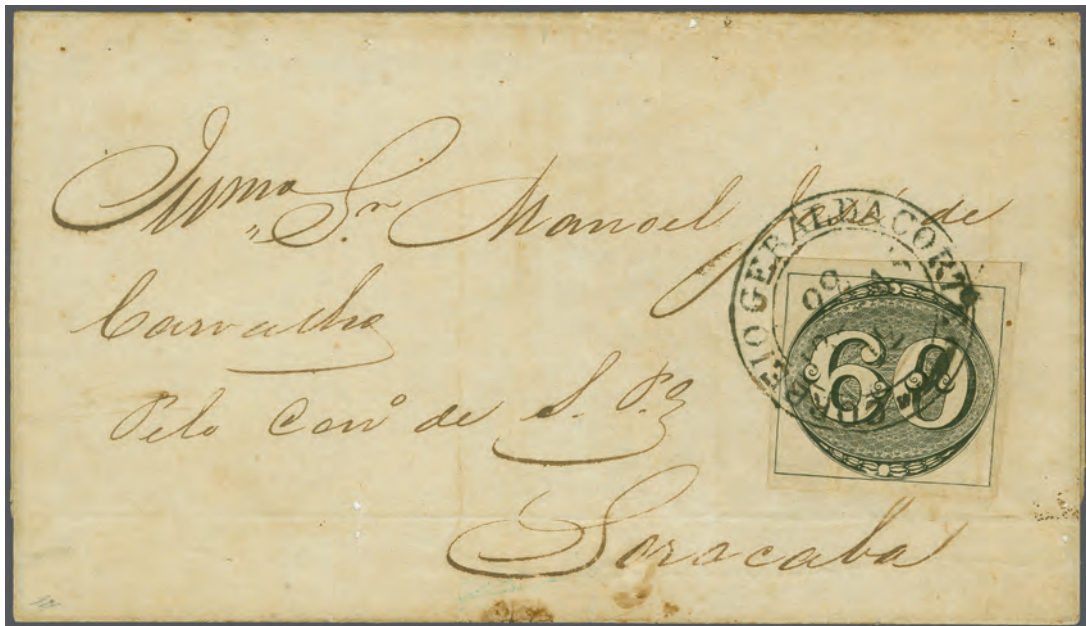 Illmo Sr. Manoel José de
Carvalho
Pelo Corro de S. P.
Sorocaba
CORREIO GERAL DA CORTE
60